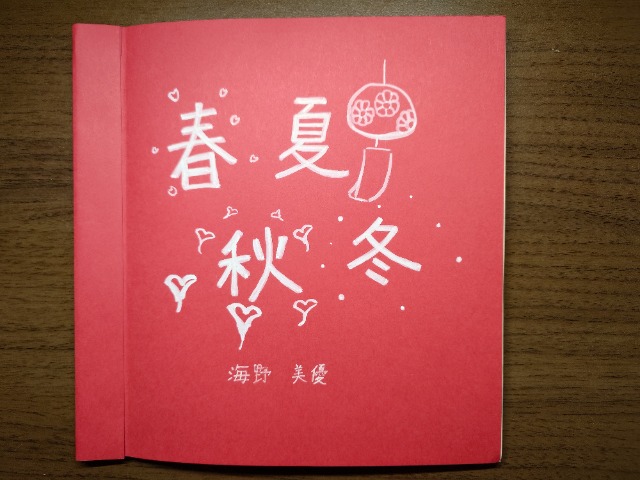 春 夏
秋 冬
海野 美優